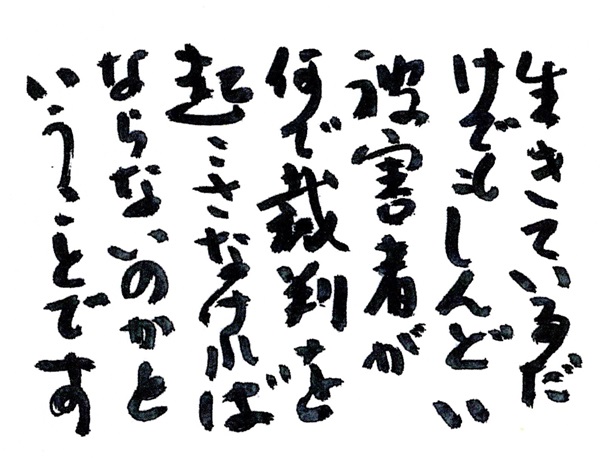 生きているだ
けでもしんどい
被害者が
何で裁判を
起こさなければ
ならないのかと
いうことです